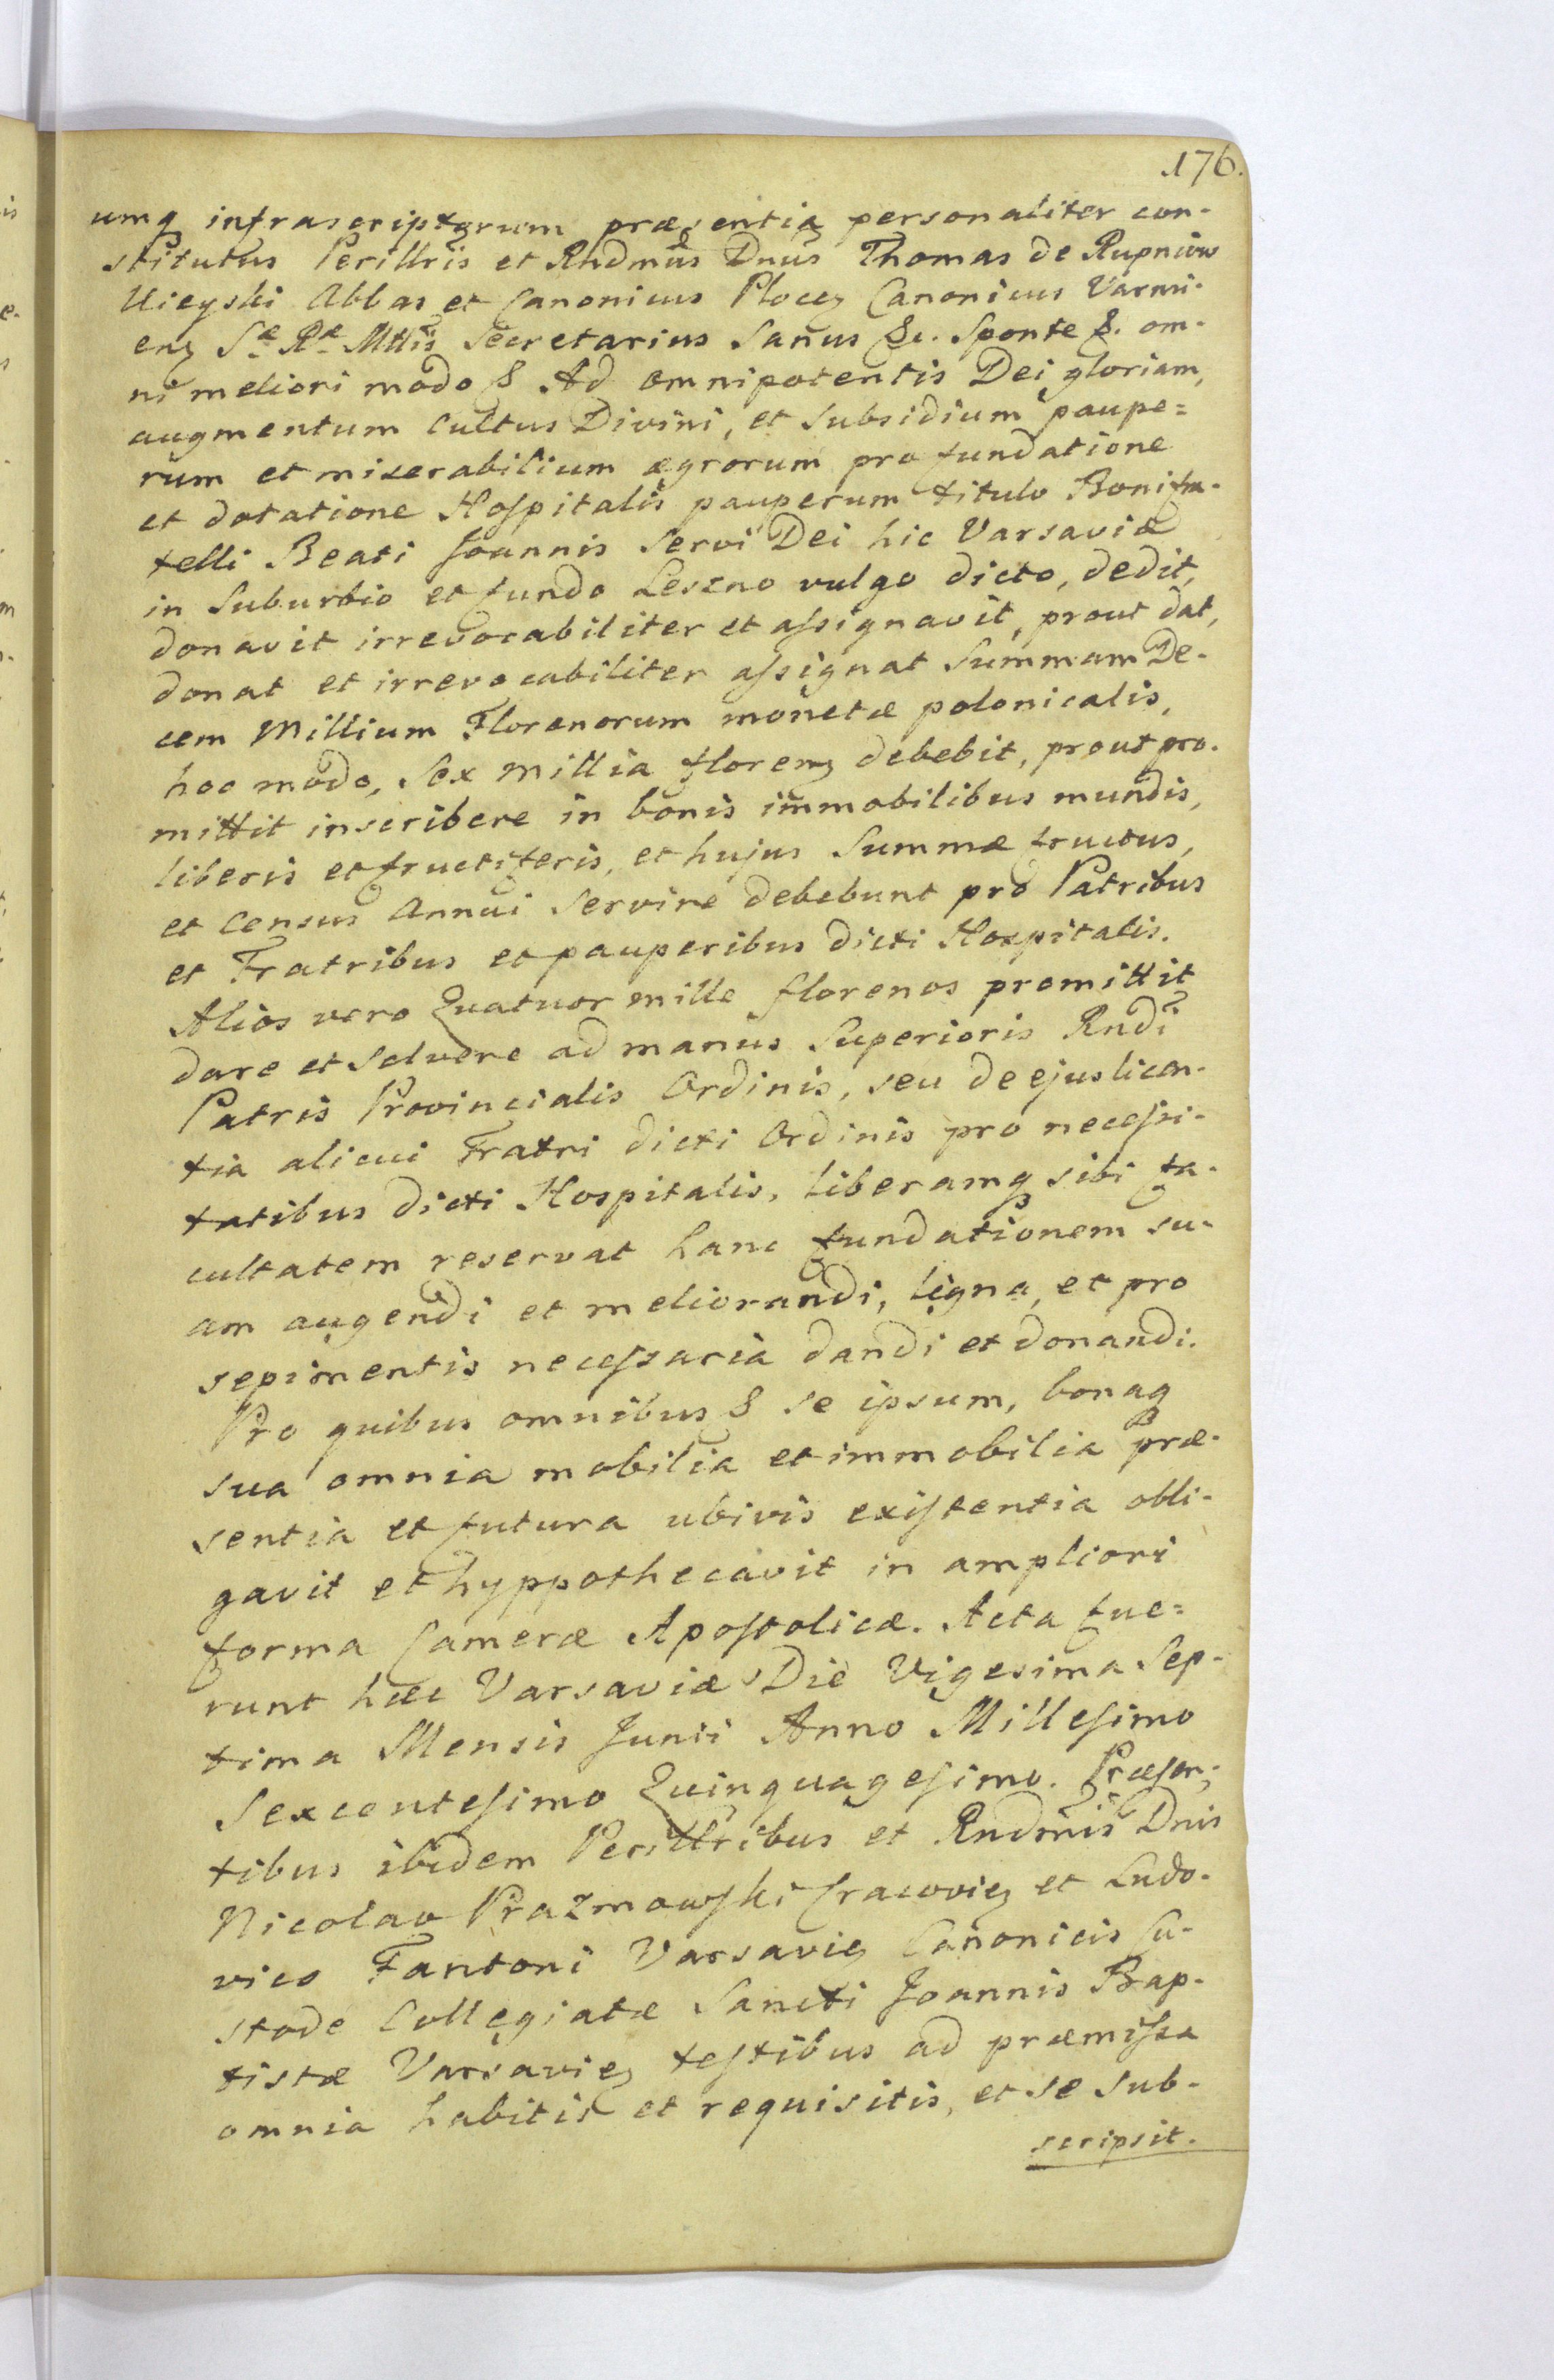 176.
umq infrascriptorum præsentia personaliter con-
stitutus Perillris et Rndmus Dnus Thomas de Rupniow
Uieyski Abbas et Canonicus Plocen Canonicus Varmi-
en Sæ Ræ Mttis Secretarius Sanus &c. Sponte &. om-
ni meliori modo & Ad omnipotentis Dei gloriam,
augmentum Cultus Divini, et subsidium paupe=
rum et miserabilium ægrorum pro fundatione
et dotatione Hospitalis pauperum titulo Bonifra-
telli Beati Joannis Servi Dei hic Varsaviæ
in Suburbio et fundo Leszno vulgo dicto, dedit,
donavit irrevocabiliter et assignavit, prout dat,
donat et irrevocabiliter assignat Summam De-
cem Millium Florenorum monetæ polonicalis,
hoc modo, Sex millia floren debebit, prout pro-
mittit inscribere in bonis immobilibus mundis,
liberis et fructiferis, et hujus Summæ fructus,
et Census Annui Servire debebunt pro Patribus
et Fratribus et pauperibus dicti Hospitalis.
Alios vero Quatuor mille florenos promittit
dare et solvere ad manus Superioris Rndi
Patris Provincialis Ordinis, seu de ejus licen-
tia alicui Fratri dicti Ordinis pro necessi-
tatibus dicti Hospitalis, liberamq sibi fa-
cultatem reservat hanc fundationem su-
am augendi et meliorandi, ligna, et pro
sepimentis necessaria dandi et donandi.
Pro quibus omnibus & se ipsum, bonaq
sua omnia mobilia et immobilia præ-
sentia et futura ubivis existentia obli-
gavit et hyppothecavit in ampliori
forma Cameræ Apostolicæ. Acta fue=
runt hæc Varsaviæ Die Vigesima Sep-
tima Mensis Junii Anno Millesimo
Sexcentesimo Quinquagesimo. Præsen-
tibus ibidem Perillribus et Rndmis Dnis
Nicolao Prazmowski Cracovien et Ludo-
vico Fantoni Varsavien Canonicis Cu-
stode Collegiatæ Sancti Joannis Bap-
tistæ Varsavien testibus ad præmissa
omnia habitis et requisitis, et se sub-
scripsit.